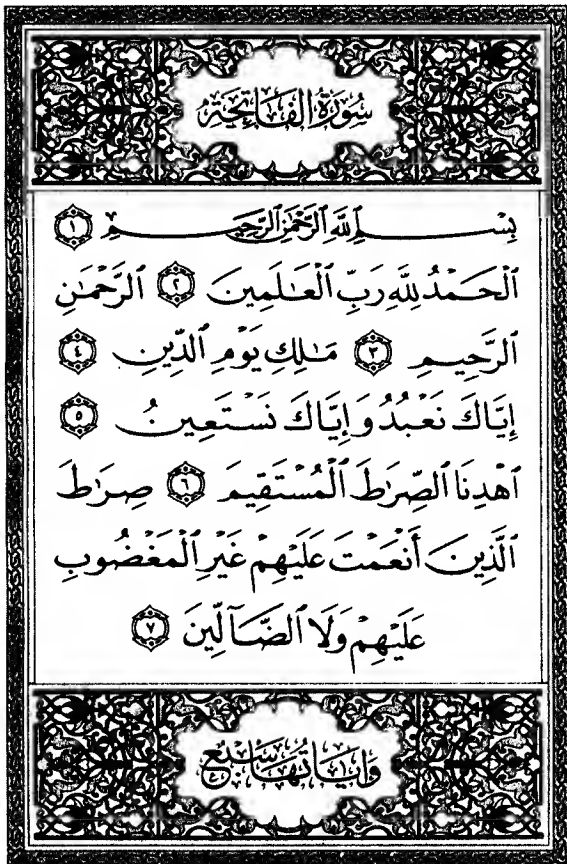 سُورَةُ الفَاتِحَةِ
بِسْمِ ٱللَّهِ ٱلرَّحْمَٰنِ ٱلرَّحِيمِ ١
ٱلْحَمْدُ لِلَّهِ رَبِّ ٱلْعَٰلَمِينَ ٢ ٱلرَّحْمَٰنِ
ٱلرَّحِيمِ ٣ مَٰلِكِ يَوْمِ ٱلدِّينِ ٤
إِيَّاكَ نَعْبُدُ وَإِيَّاكَ نَسْتَعِينُ ٥
ٱهْدِنَا ٱلصِّرَٰطَ ٱلْمُسْتَقِيمَ ٦ صِرَٰطَ
ٱلَّذِينَ أَنْعَمْتَ عَلَيْهِمْ غَيْرِ ٱلْمَغْضُوبِ
عَلَيْهِمْ وَلَا ٱلضَّآلِّينَ ٧
وَاٰيَاتُهَا سَبْعٌ